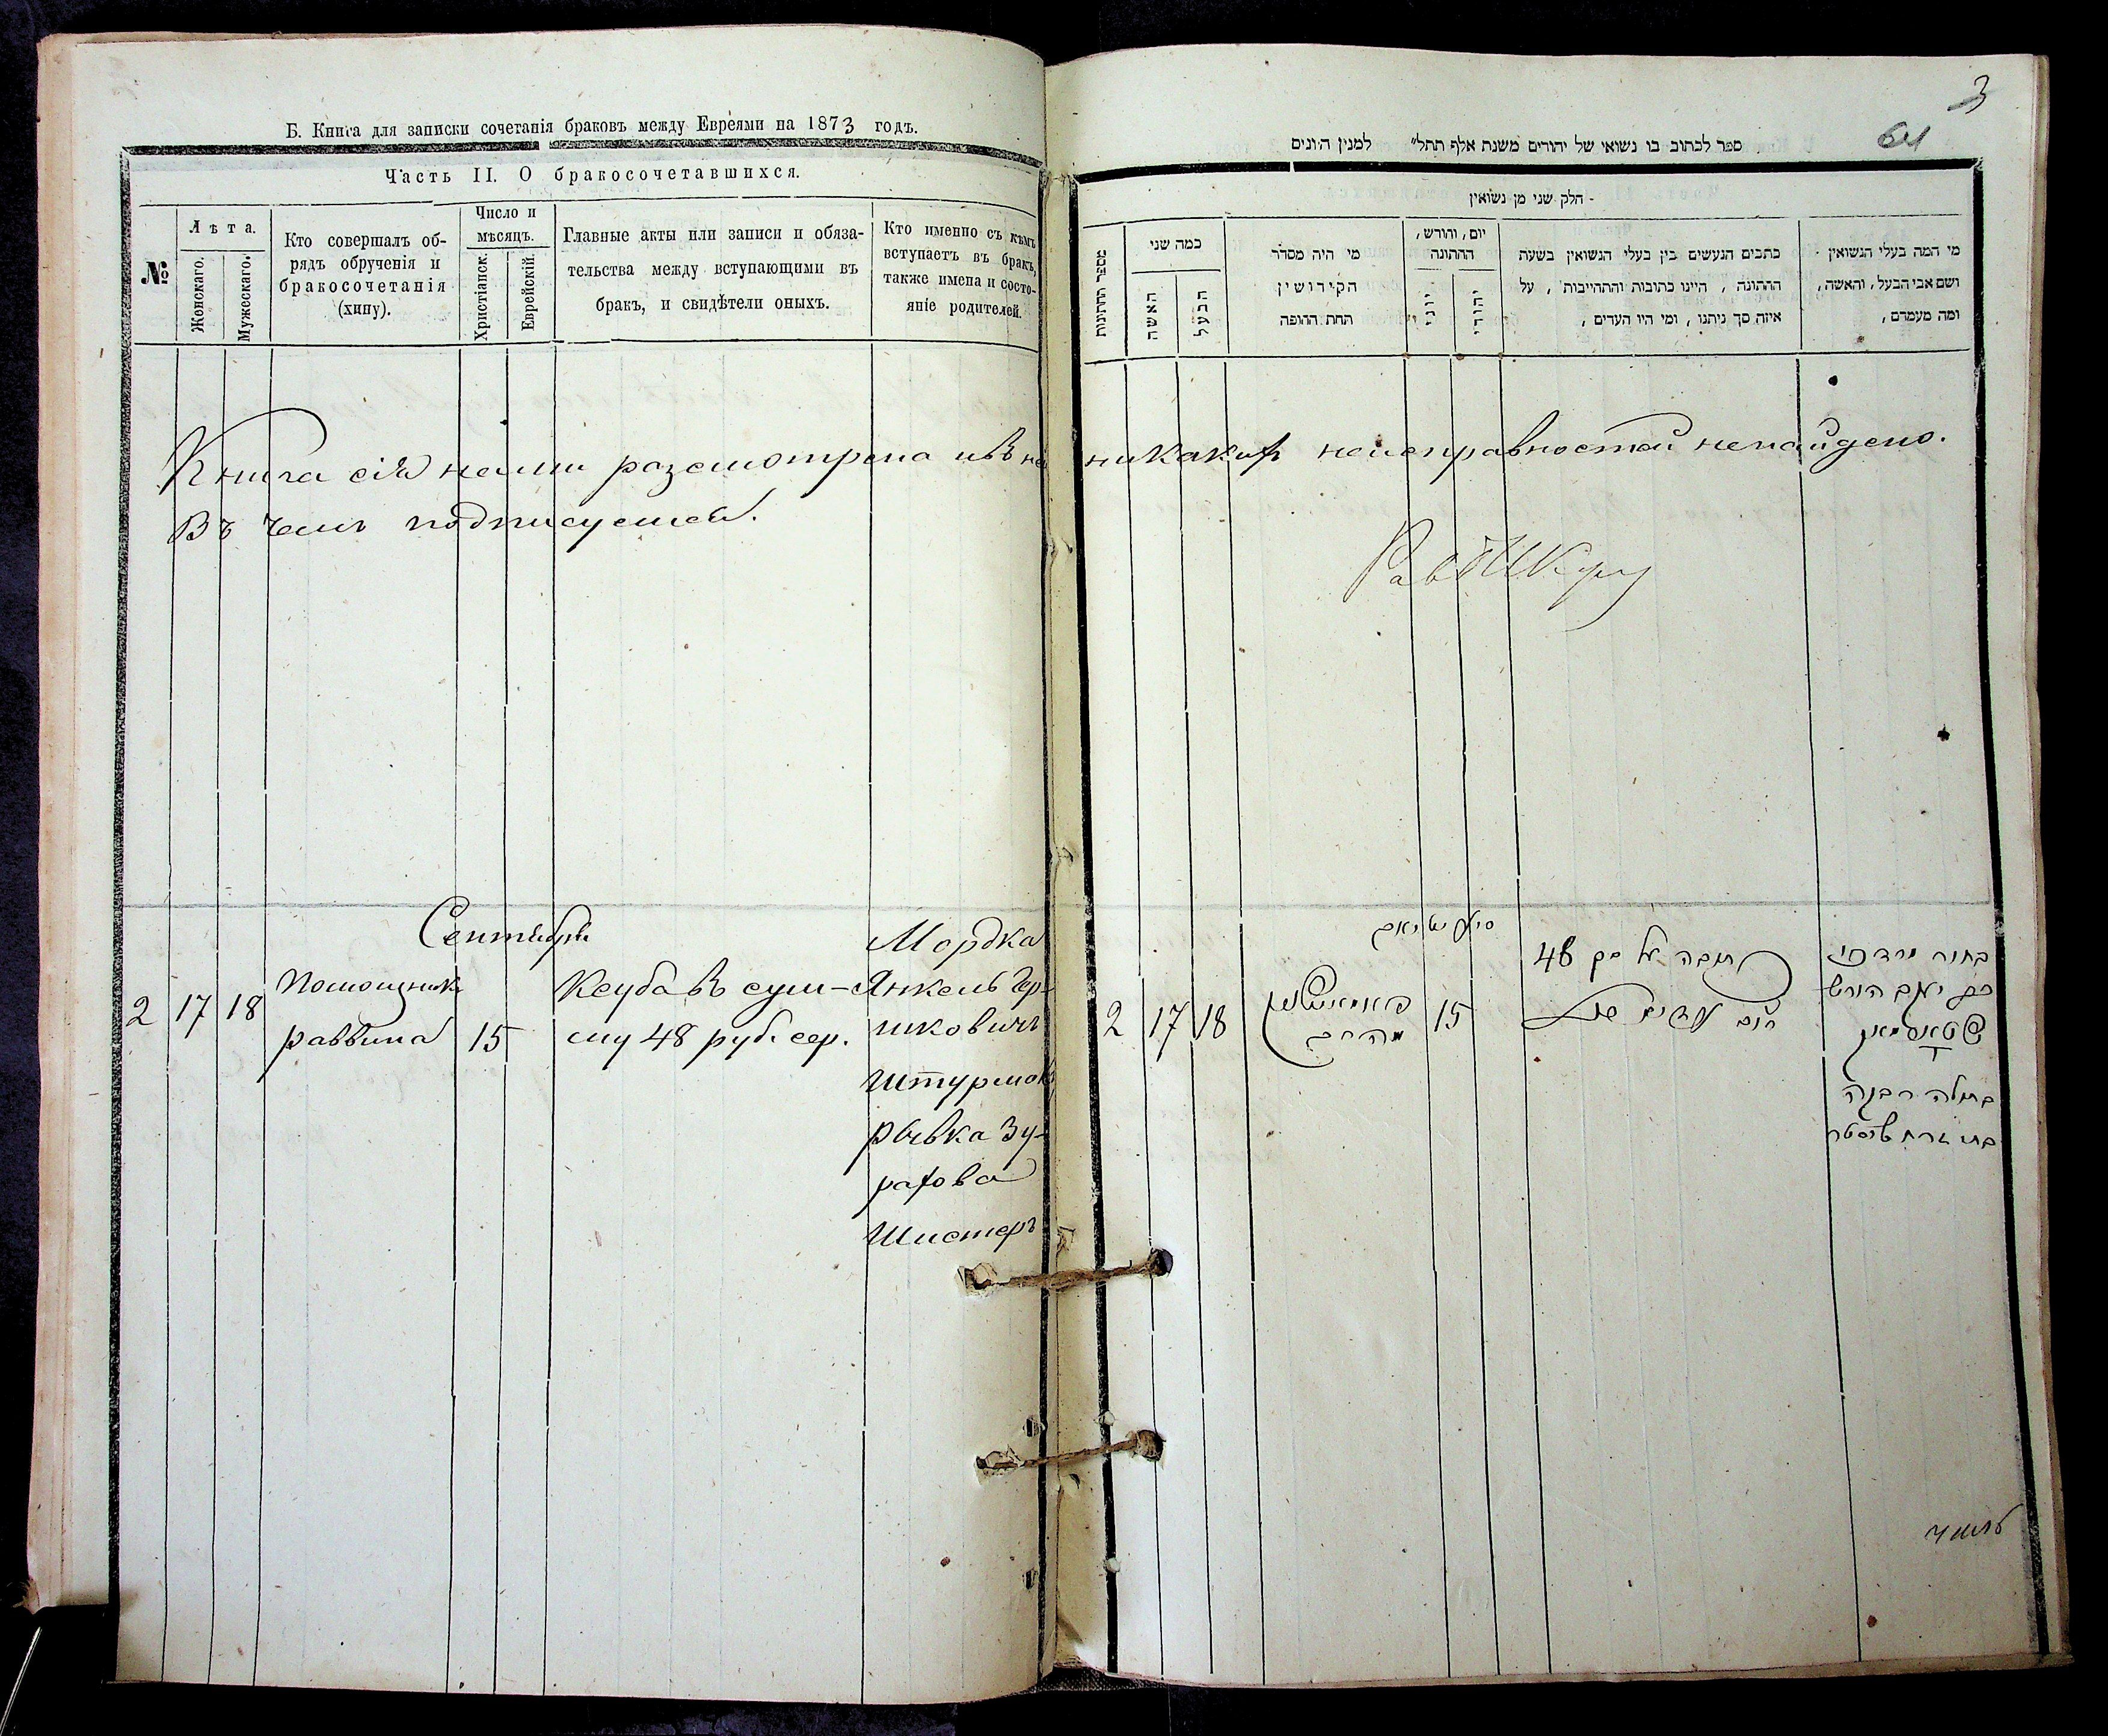 Б. Книга для записки сочетанія браковъ между Евреями на 1873 годъ.
Часть II. О бракосочетавшихся.
№
Лѣта.
Женскаго.
Мужескаго.
Кто совершалъ об-
рядъ обрученія и
бракосочетанія
(хипу).
Число и
мѣсяцъ.
Христіанск.
Еврейскій.
Главные акты или записи и обяза-
тельства между вступающими въ
бракъ, и свидѣтели оныхъ.
Кто именно съ кѣмъ
вступаетъ въ бракъ,
также имена и состо-
яніе родителей.
Книга сія нами разсмотрена и въ не
въ чемъ подписуемся.
Сентября
2 17 18
Помощник
раввина
15
Ксуба в сум-
му 48 руб. сер.
Мордка
Янкель Гер-
шковичъ
Штурмак
Рывка Зу-
рахова
Шистеръ
3
64
ספר לכתוב בו נשואי של יהודים משנת אלף תתל״ למנין היונים
חלק שני מן נשואין
מספר החתונות
כמה שני
האשה
הבעל
מי היה מסדר
הקידושין
תחת החופה
יום, וחורש,
החתונה
יוני
יהודי
כתבים הנעשים בין בעלי הנשואין בשעת
החתונה, היינו כתובות והתחייבות, על
איזה סך ניתנו, ומי היו העדים,
מי המה בעלי הנשואין
ושם אבי הבעל, והאשה,
ומה מעמדם,
никаких неисправностей ненайдено.
2 17 18
15
כתובה על סך 48
בחור מרדכי
בתולה רבקה